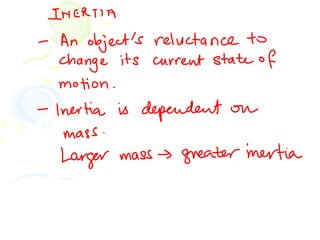 INERTIA
- An object's reluctance to
change its current state of
motion.
- Inertia is dependent on
mass.
Larger mass → greater inertia